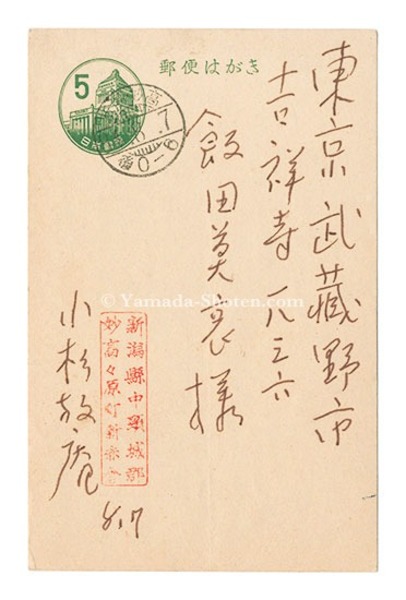 郵便はがき
5
日本郵便
東京武藏野市
吉祥寺一八三六
飯田莫哀様
新潟縣中頸城郡
妙高々原町新赤倉
小杉放庵
8.7
© Yamada-Shoten.com